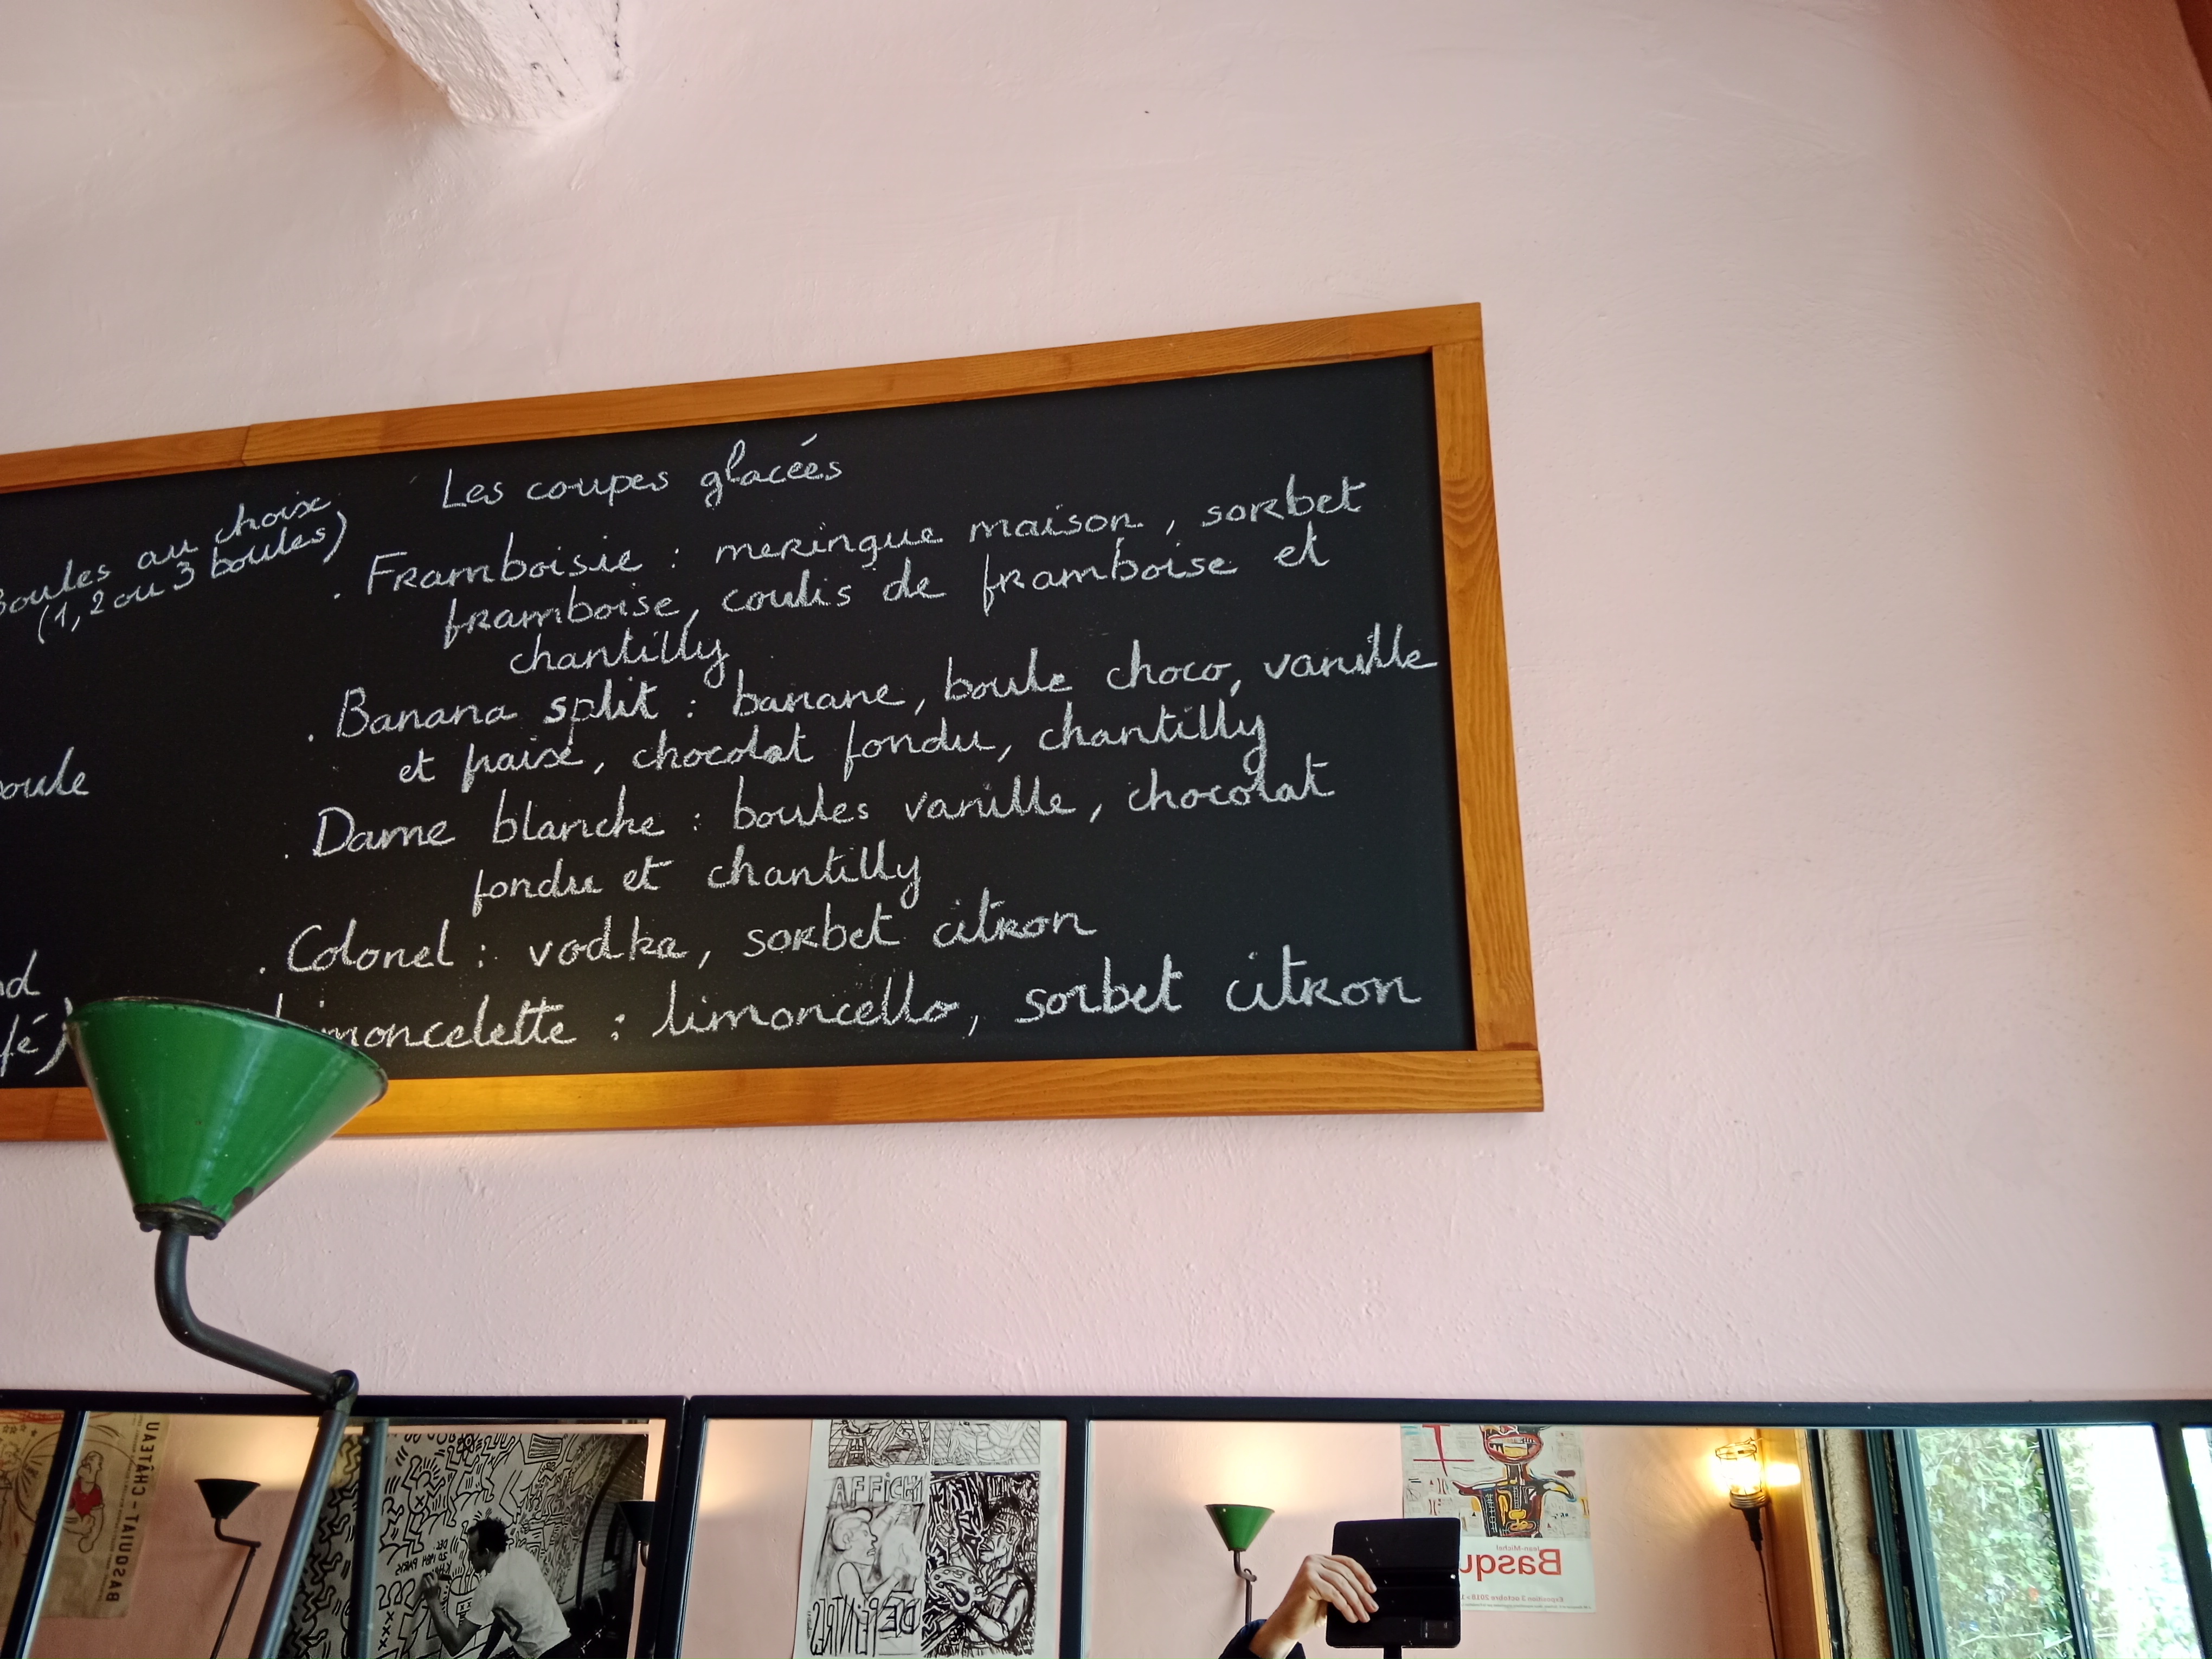 Les coupes glacées
boules au choix
(1, 2 ou 3 boules)
. Framboisie : meringue maison, sorbet
framboise, coulis de framboise et
chantilly
. Banana split : banane, boule choco, vanille
et fraise, chocolat fondu, chantilly
. Dame blanche : boules vanille, chocolat
fondu et chantilly
. Colonel : vodka, sorbet citron
Limoncelette : limoncello, sorbet citron
boule
BASQUIAT - CHÂTEAU
AFFICH
DE PEINTRES
Jean-Michel
Basqu
Exposition 3 octobre 2018